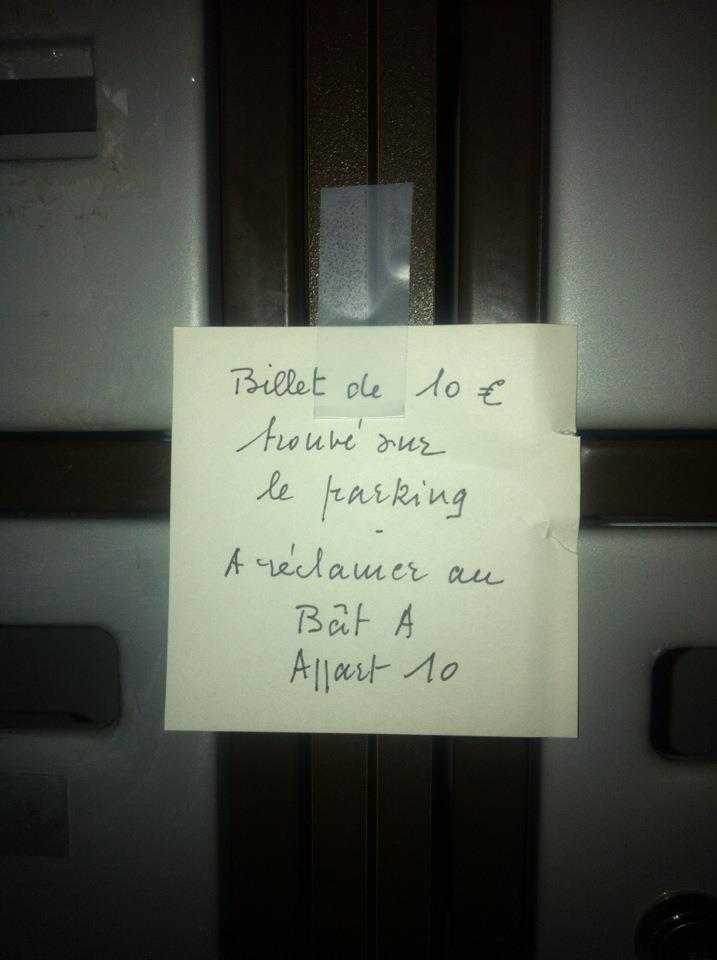 Billet de 10 €
trouvé sur
le parking
-
A réclamer au
Bât A
Appart 10